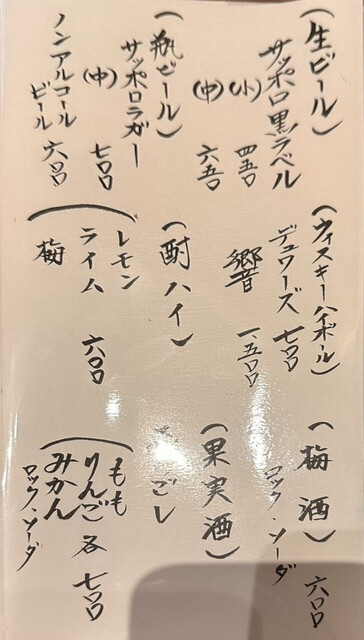 （生ビール）
サッポロ黒ラベル
（小） 四五〇
（中） 六五〇
（瓶ビール）
サッポロラガー
（中） 七〇〇
ノンアルコール
ビール 六〇〇
（ウィスキーハイボール）
デュワーズ 七〇〇
響 一、五〇〇
（酎ハイ）
レモン
ライム 六〇〇
梅
（梅酒） 六〇〇
ロック・ソーダ
（果実酒）
ごし
もも
りんご 各 七〇〇
みかん
ロック・ソーダ